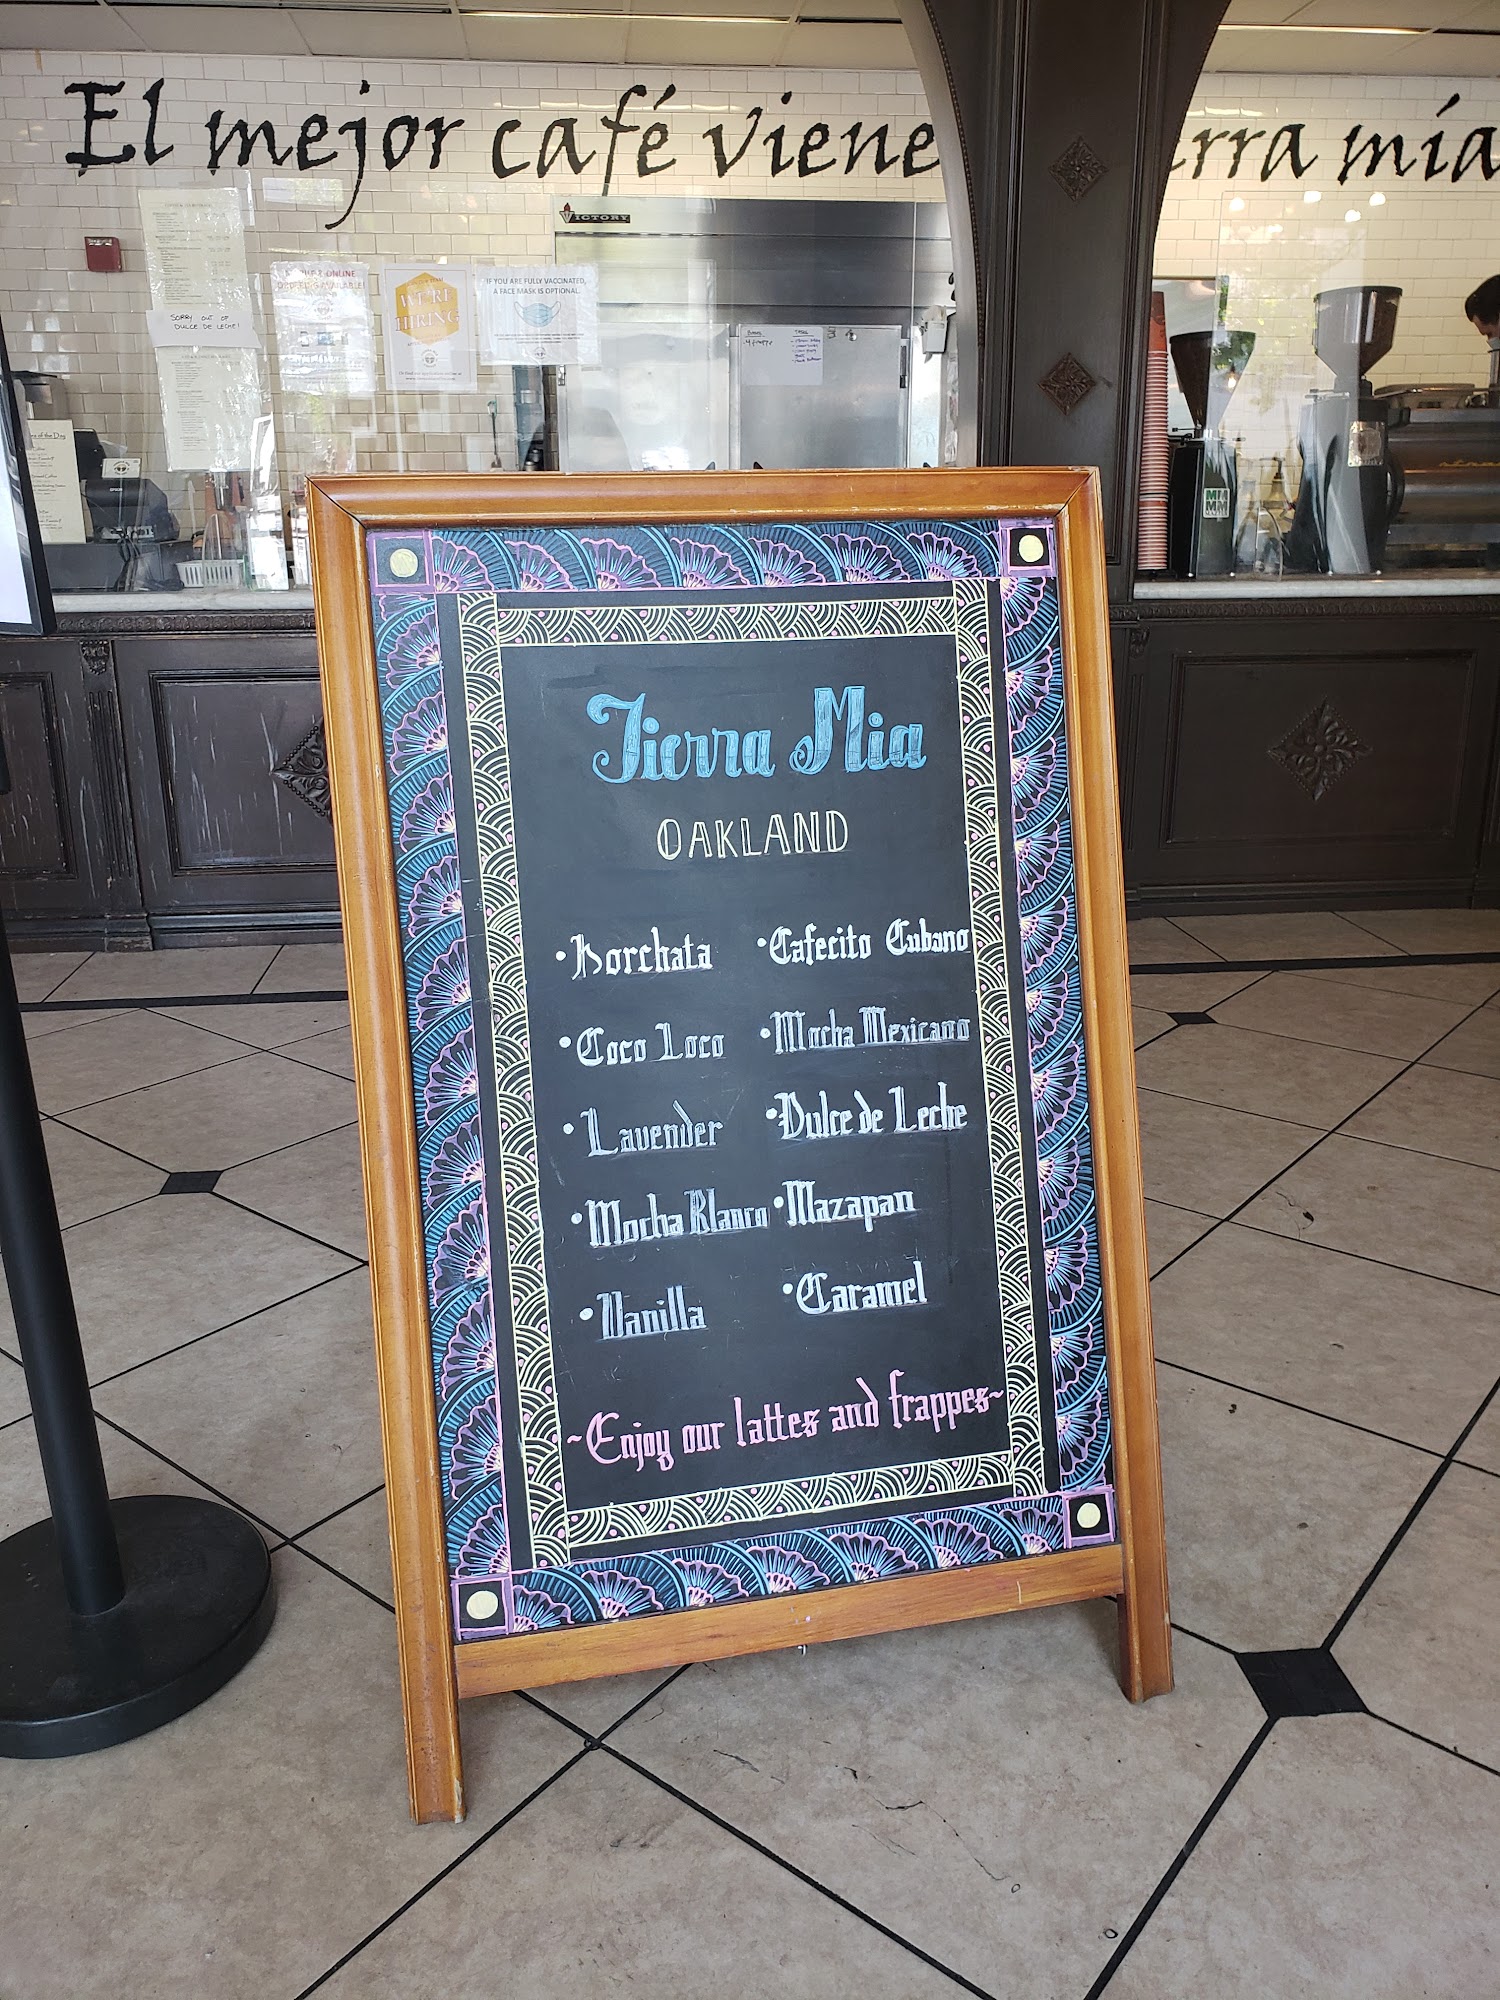 El mejor café viene
rra mía
VICTORY
SORRY OUT OF
DULCE DE LECHE!
ONLINE
ORDERING AVAILABLE!
WE'RE
HIRING
IF YOU ARE FULLY VACCINATED,
A FACE MASK IS OPTIONAL.
of the Day
EPSON
Tierra Mia
OAKLAND
•Horchata
•Cafecito Cubano
•Coco Loco
•Mocha Mexicano
•Lavender
•Dulce de Leche
•Mocha Blanco
•Mazapan
•Vanilla
•Caramel
~Enjoy our lattes and frappes~